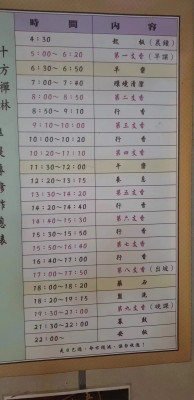 時間 內容
4:30 起板（晨鐘）
5:00～6:20 第一支香（早課）
6:30～6:50 早齋
7:00～7:40 環境清潔
8:00～8:50 第二支香
8:50～9:10 行香
9:10～10:00 第三支香
10:00～10:20 行香
10:20～11:10 第四支香
11:30～12:00 午齋
12:20～13:15 養息
13:30～14:20 第五支香
14:20～14:40 行香
14:40～15:30 第六支香
15:30～15:50 行香
15:50～16:40 第七支香
16:40～17:00 行香
17:00～17:50 第八支香（出坡）
18:00～18:20 藥石
18:20～19:15 盥洗
19:30～21:00 第九支香（晚課）
21:30～22:00
22:00～ 安板
十方禪林